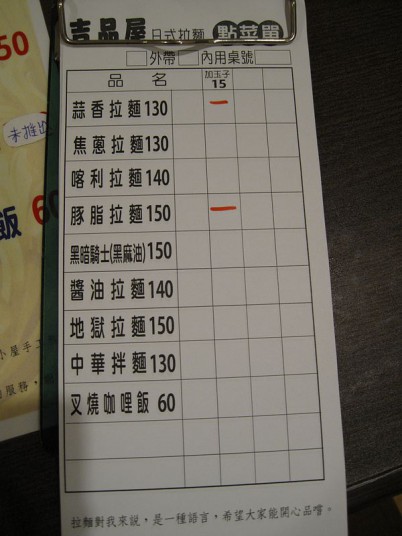 吉品屋 日式拉麵 點菜單
外帶 內用桌號
品名 加玉子 15
蒜香拉麵130
焦蔥拉麵130
喀利拉麵140
豚脂拉麵150
黑暗騎士(黑麻油)150
醬油拉麵140
地獄拉麵150
中華拌麵130
叉燒咖哩飯 60
拉麵對我來說，是一種語言，希望大家能開心品嚐。
50
未推出
飯 60
小屋手工
服務，